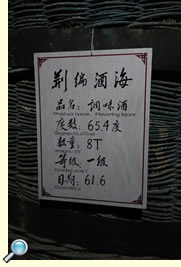 荆编酒海
品名：调味酒
Product name: Flavoring liquor
度数：65.4度
数量：8T
等级：一级
日期：61.6